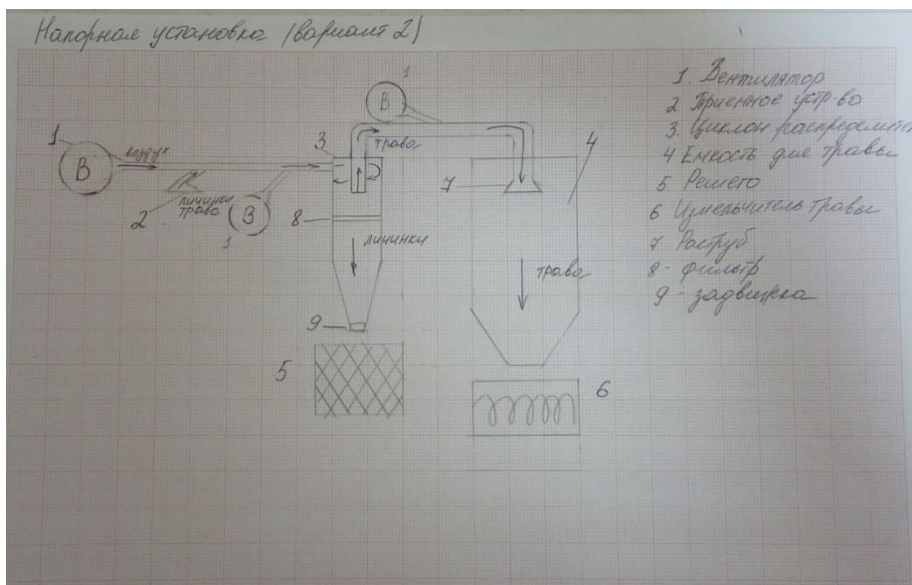 Напорная установка (вариант 2)
1
B
воздух
личинки
трава
2
B
1
3
8
9
5
личинки
B
1
трава
7
4
трава
6
1. Вентилятор
2 Приемное устр-во
3. Циклон распределител
4 Емкость для травы
5. Решето
6 Измельчитель травы
7 Раструб
8 - фильтр
9 - задвижка